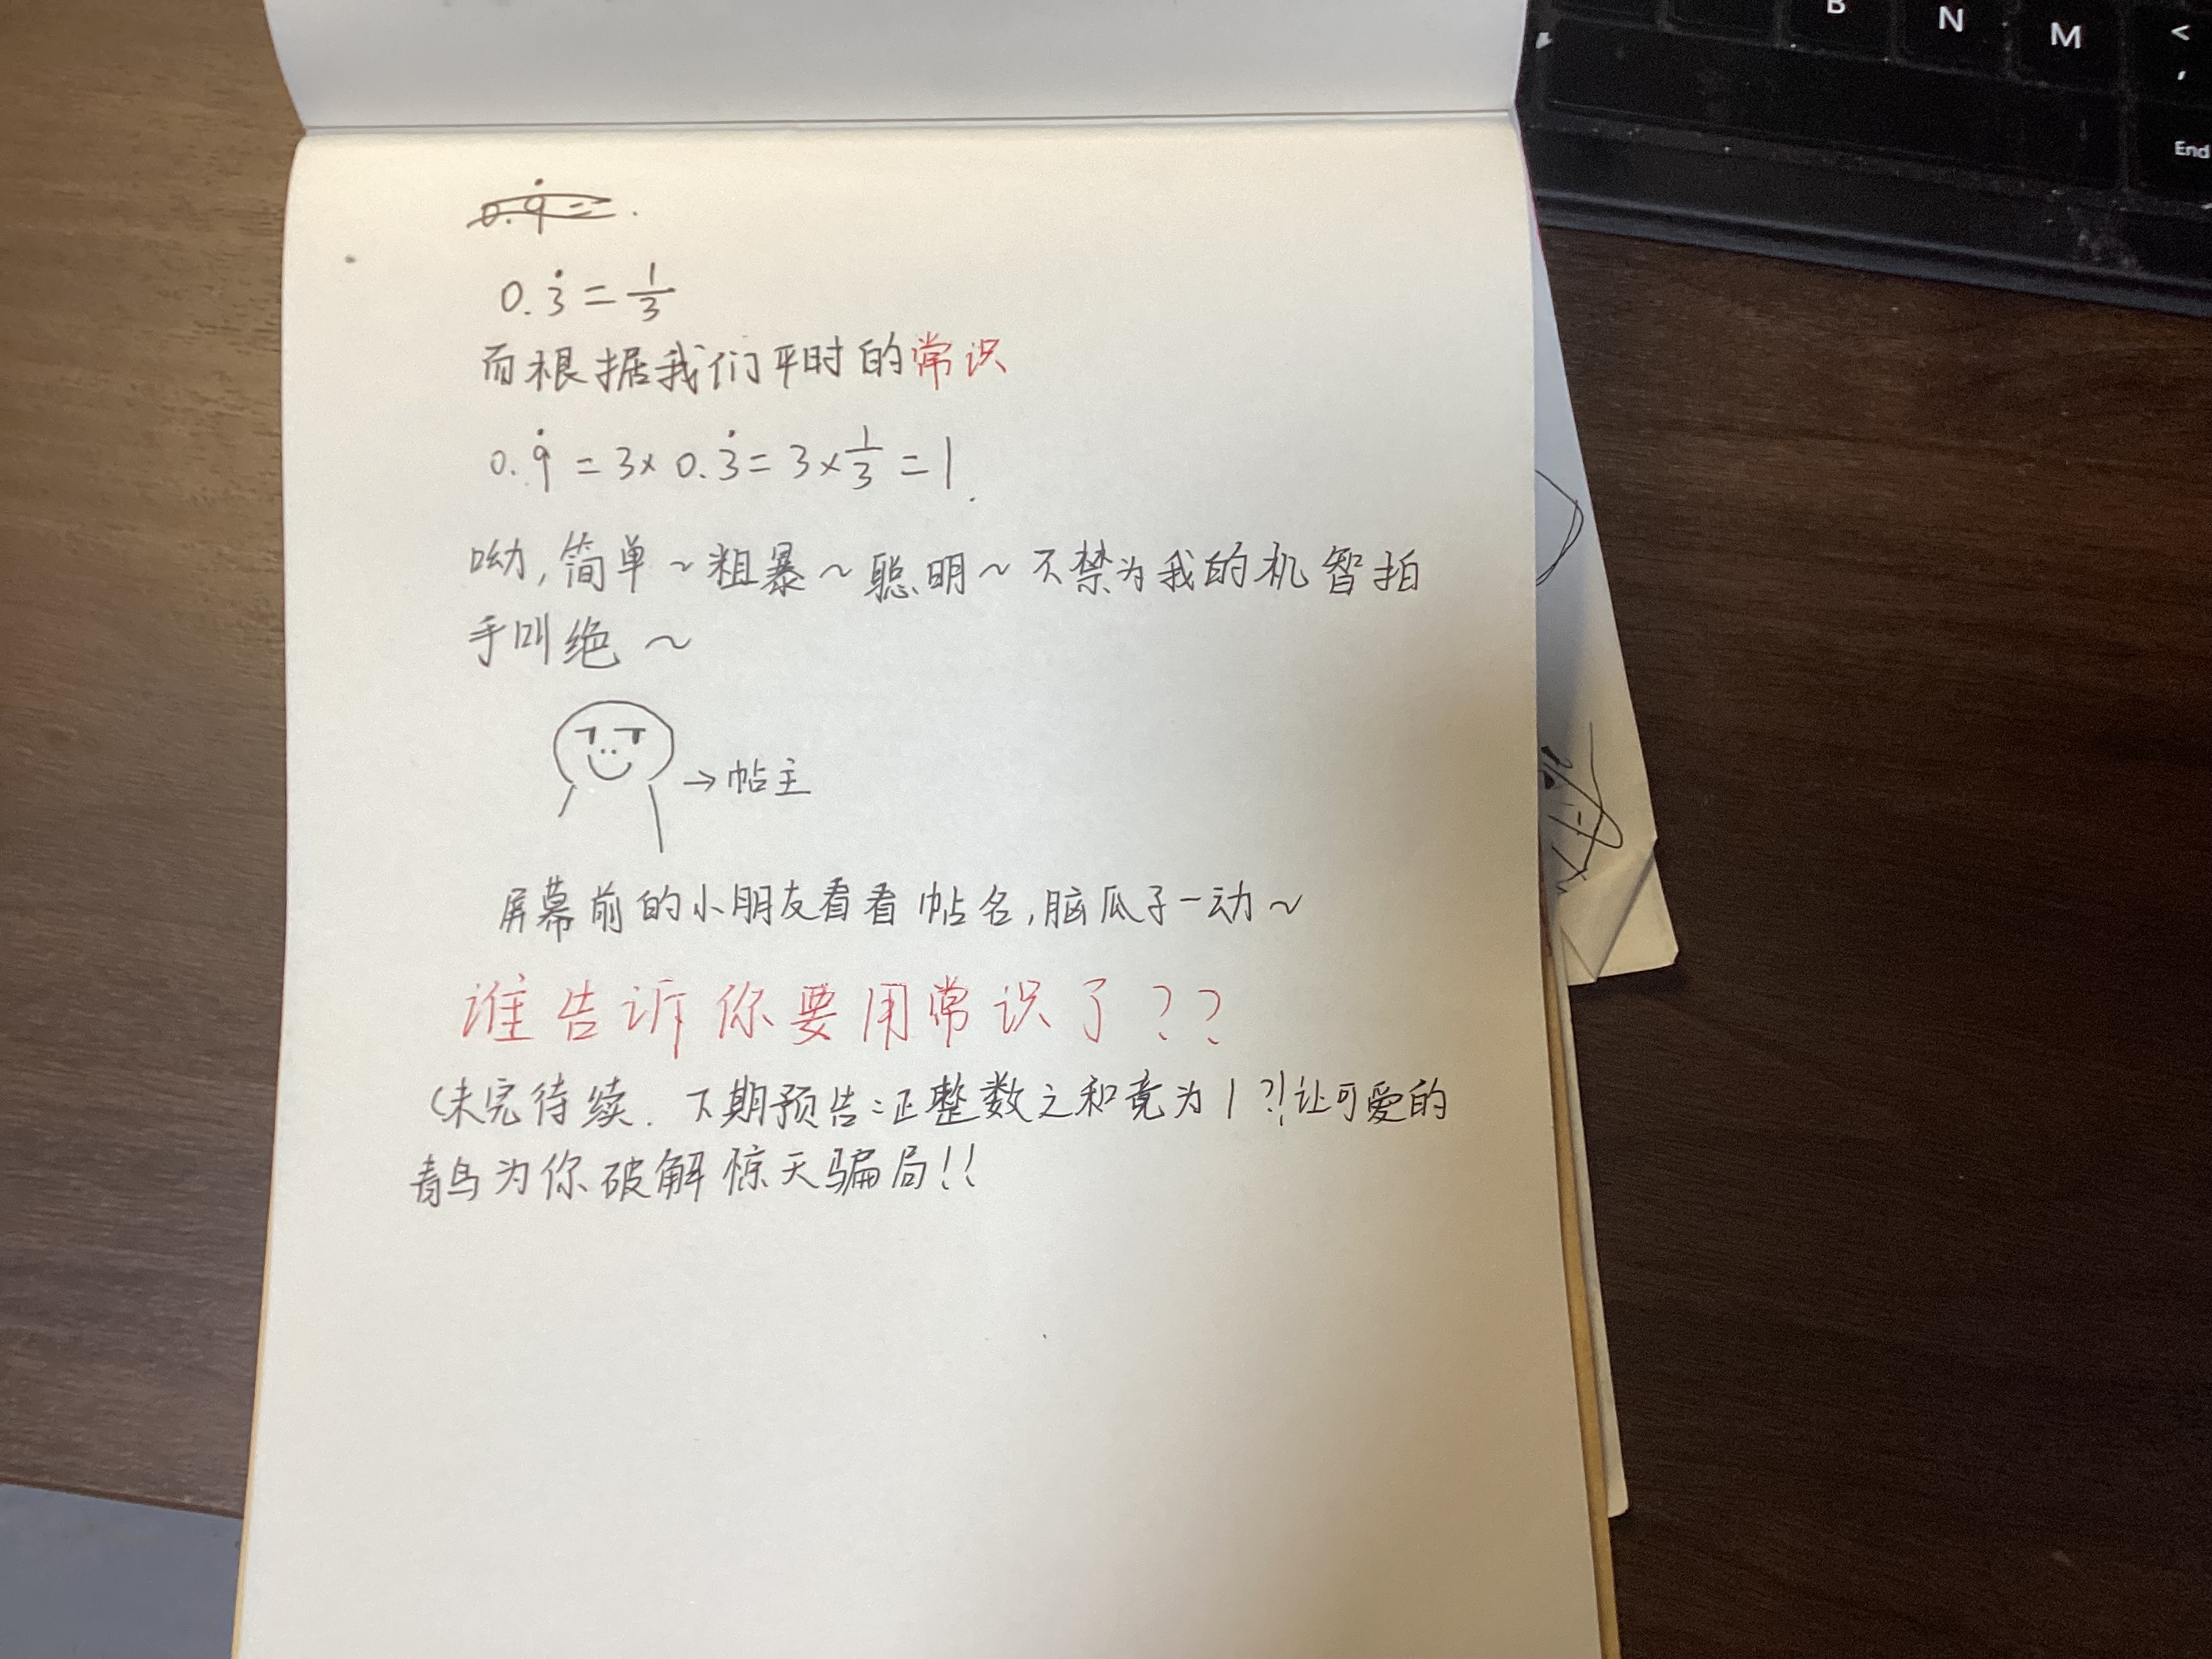 B N M <
,
End
0.9̇ = .
0.3̇ = 1/3
而根据我们平时的常识
0.9̇ = 3× 0.3̇ = 3×1/3 = 1.
呦,简单~粗暴~聪明~不禁为我的机智拍
手叫绝~
→帖主
屏幕前的小朋友看看帖名,脑瓜子一动~
谁告诉你要用常识了??
(未完待续. 下期预告:正整数之和竟为1?!让可爱的
青鸟为你破解惊天骗局!!